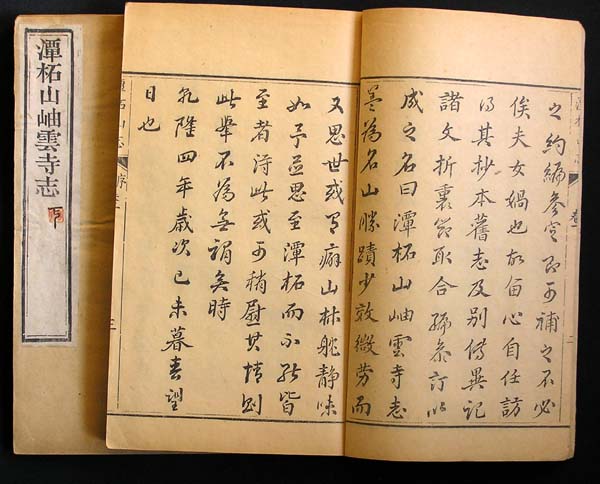 潭柘山岫雲寺志
下
之約編參定即可補之不必
俟夫女媧也故毎心自任訪
得其抄本舊志及別傳異記
諸文折裏節取合編叅訂以
成之名曰潭柘山岫雲寺志
蓋為名山勝蹟少效微勞而
又思世或有癖山林躭靜味
如予並思至潭柘而不能皆
至者得此或可稍慰其情則
此舉不為無謂矣時
乾隆四年歲次己未暮春望
日也
潭柘山志
序
三